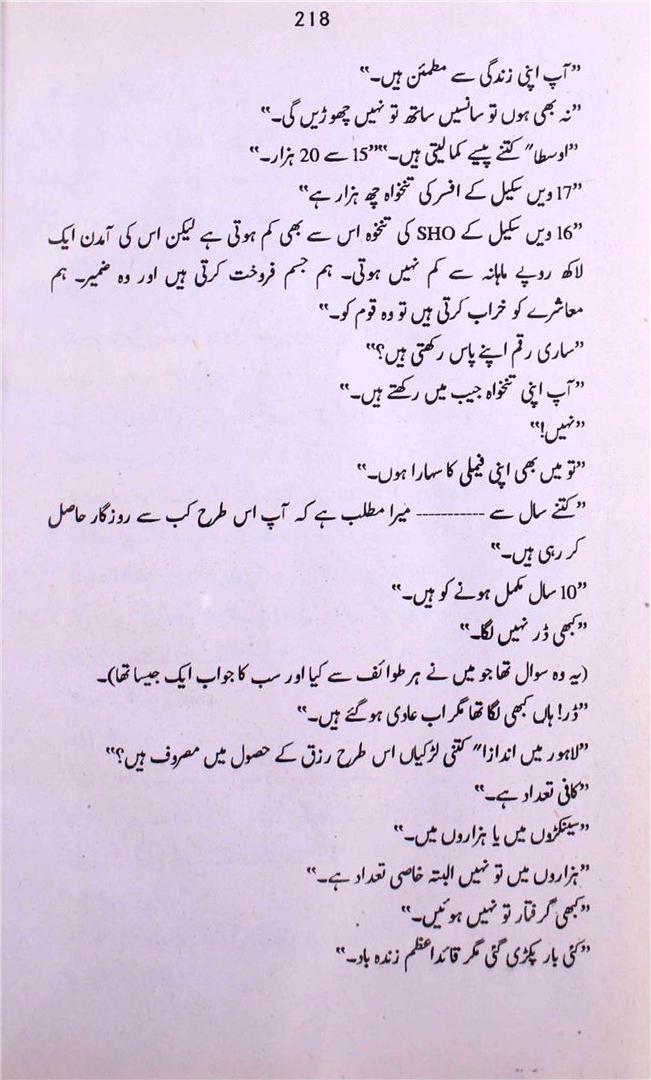 218
”آپ اپنی زندگی سے مطمئن ہیں۔“
”نہ بھی ہوں تو سانسیں ساتھ تو نہیں چھوڑیں گی۔“
”اوسطا″ کتنے پیسے کما لیتی ہیں۔“”15 سے 20 ہزار۔“
”17 ویں سکیل کے افسر کی تنخواہ چھ ہزار ہے“
”16 ویں سکیل کے SHO کی تنخوہ اس سے بھی کم ہوتی ہے لیکن اس کی آمدن ایک
لاکھ روپے ماہانہ سے کم نہیں ہوتی۔ ہم جسم فروخت کرتی ہیں اور وہ ضمیر۔ ہم
معاشرے کو خراب کرتی ہیں تو وہ قوم کو۔“
”ساری رقم اپنے پاس رکھتی ہیں؟“
”آپ اپنی تنخواہ جیب میں رکھتے ہیں۔“
”نہیں!“
”تو میں بھی اپنی فیملی کا سہارا ہوں۔“
”کتنے سال سے ---------- میرا مطلب ہے کہ آپ اس طرح کب سے روزگار حاصل
کر رہی ہیں۔“
”10 سال مکمل ہونے کو ہیں۔“
”کبھی ڈر نہیں لگا۔“
(یہ وہ سوال تھا جو میں نے ہر طوائف سے کیا اور سب کا جواب ایک جیسا تھا)۔
”ڈر! ہاں کبھی لگا تھا مگر اب عادی ہو گئے ہیں۔“
”لاہور میں اندازا″ کتنی لڑکیاں اس طرح رزق کے حصول میں مصروف ہیں؟“
”کافی تعداد ہے۔“
”سینکڑوں میں یا ہزاروں میں۔“
”ہزاروں میں تو نہیں البتہ خاصی تعداد ہے۔“
”کبھی گرفتار تو نہیں ہوئیں۔“
”کئی بار پکڑی گئی مگر قائداعظم زندہ باد۔“